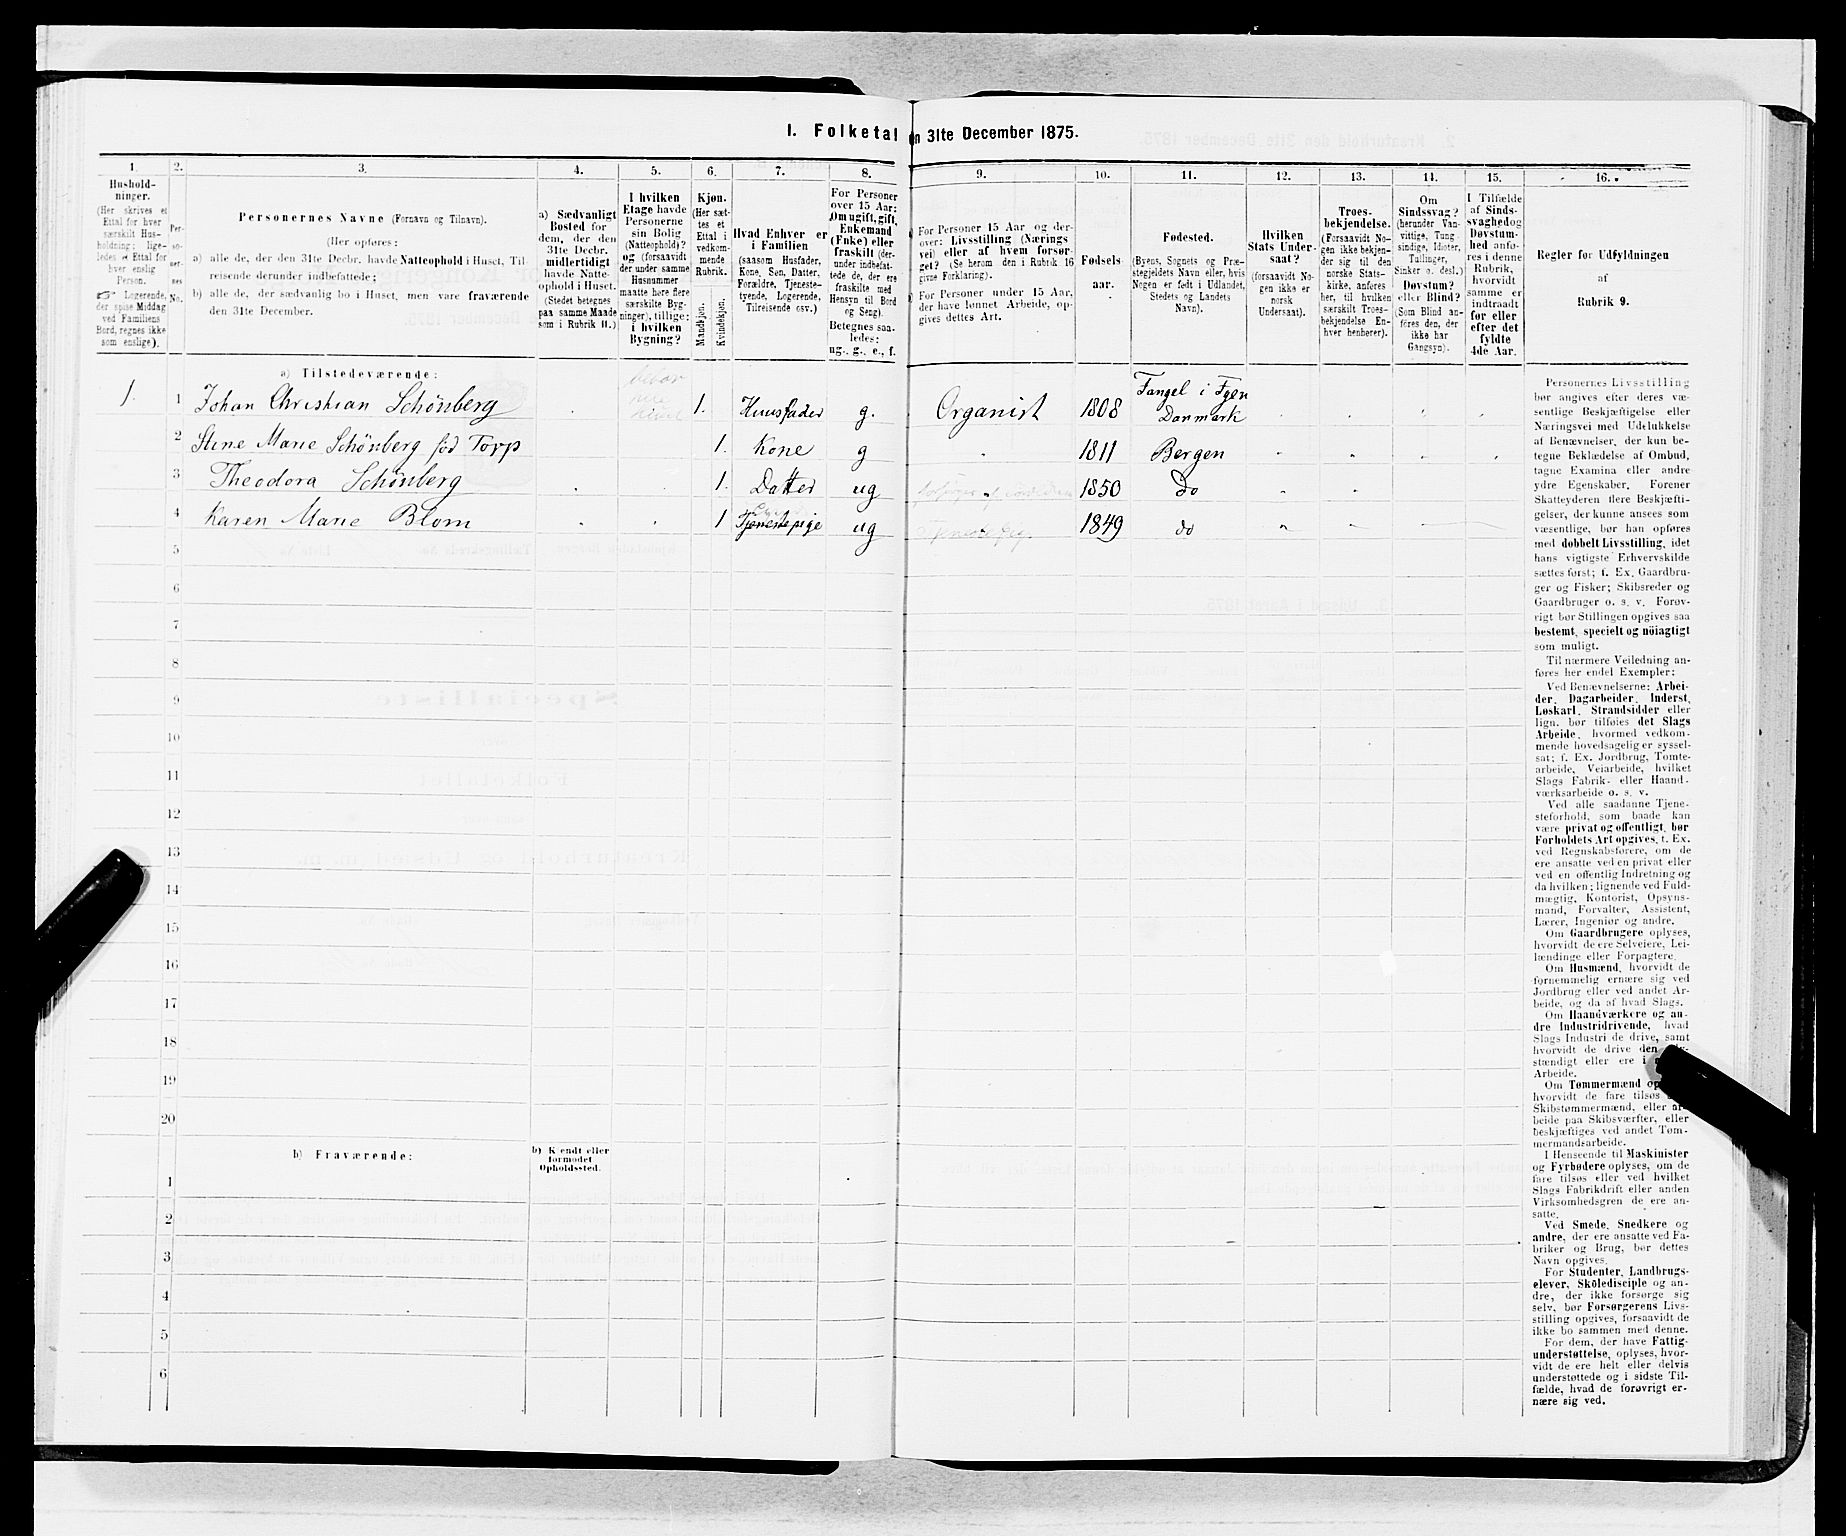 I. Folketal en 31te December 1875.
1.
Hushold-
ninger.
(Her skrives et
Ettal for hver
særskilt Hus-
holdning; lige-
ledes et Ettal for
hver enslig
Person.
Logerende,
der spise Middag
ved Familiens
Bord, regnes ikke
som enslige).
2.
Per-
so-
ner-
nes
No.
3.
Personernes Navne (Fornavn og Tilnavn).
(Her opføres:
a) alle de, der den 31te Decbr. havde Natteophold i Huset, Til-
reisende derunder indbefattede;
b) alle de, der sædvanlig bo i Huset, men vare fraværende
den 31te December.
4.
a) Sædvanligt
Bosted for
dem, der den
31te Decbr.
midlertidigt
havde Natte-
ophold i Huset.
(Stedet betegnes
paa samme Maade
som i Rubrik 11.)
5.
I hvilken
Etage havde
Personerne
sin Bolig
(Natteophold)?
og (forsaavidt
der under samme
Husnummer
maatte høre flere
særskilte Byg-
ninger), tillige:
i hvilken
Bygning?
6.
Kjøn.
(Her sæt-
tes et
Ettal i
vedkom-
mende
Rubrik.
Mandkjøn.
Kvindekjøn.
7.
Hvad Enhver er
i Familien
(saasom Husfader,
Kone, Søn, Datter,
Forældre, Tjeneste-
tyende, Logerende,
Tilreisende osv.)
8.
For Personer
over 15 Aar:
Om ugift, gift,
Enkemand
(Enke) eller
fraskilt (der-
under indbefat-
tede de, der ere
fraskilte med
Hensyn til Bord
og Seng).
Betegnes saa-
ledes:
ug., g., e., f.
9.
For Personer 15 Aar og der-
over: Livsstilling (Nærings
vei) eller af hvem forsør-
get? (Se herom den i Rubrik 16
givne Forklaring).
For Personer under 15 Aar,
der have lønnet Arbeide, op-
gives dettes Art.
10.
Fødsels-
aar.
11.
Fødested.
(Byens, Sognets og Præ-
stegjeldets Navn eller, hvis
Nogen er født i Udlandet,
Stedets og Landets
Navn).
12.
Hvilken
Stats Under-
saat?
(forsaavidt No-
gen ikke er
norsk
Undersaat).
13.
Troes-
bekjendelse.
(Forsaavidt No-
gen ikke bekjen-
der sig til den
norske Stats-
kirke, anføres
her, til hvilken
særskilt Troes-
bekjendelse En-
hver henhører).
14.
Om
Sindssvag?
(herunder Van-
vittige, Tung-
sindige, Idioter,
Tullinger,
Sinker o. desl.)
Døvstum?
eller Blind?
(Som Blind an-
føres den, der
ikke har
Gangsyn).
15.
I Tilfælde
af Sinds-
svaghed og
Døvstum-
hed anfø-
res i denne
Rubrik,
hvorvidt
samme er
indtraadt
før eller
efter det
fyldte
4de Aar.
16.
Regler for Udfyldningen
af
Rubrik 9.
a) Tilstedeværende:
1. 1 Johan Christian Schönberg 1. Huusfader g. Organist 1808 Fangel i Fyen
Danmark
2 Stine Marie Schönberg fød Torp 1. Kone g 1811 Bergen
3 Theodora Schönberg 1. Datter ug 1850 do
4 Karen Marie Blom 1 Tjenestepige ug 1849 do
5
6
7
8
9
10
11
12
13
14
15
16
17
18
19
20
b) Fraværende:
b) Kjendt eller
formodet
Opholdssted.
1
2
3
4
5
6
Personernes Livsstilling
bør angives efter deres væ-
sentlige Beskjæftigelse eller
Næringsvei med Udelukkelse
af Benævnelser, der kun be-
tegne Beklædelse af Ombud,
tagne Examina eller andre
ydre Egenskaber. Forener
Skatteyderen flere Beskjæfti-
gelser, der kunne ansees som
væsentlige, bør han opføres
med dobbelt Livsstilling, idet
hans vigtigste Erhvervskilde
sættes først; f. Ex. Gaardbru-
ger og Fisker; Skibsreder og
Gaardbruger o. s. v. Forøv-
rigt bør Stillingen opgives saa
bestemt, specielt og nöiagtigt
som muligt.
Til nærmere Veiledning an-
føres her endel Exempler:
Ved Benævnelserne: Arbei-
der, Dagarbeider, Inderst,
Løskarl, Strandsidder eller
lign. bør tilføies det Slags
Arbeide, hvormed vedkom-
mende hovedsagelig er syssel-
sat; f. Ex. Jordbrug, Tomte-
arbeide, Veiarbeide, hvilket
Slags Fabrik- eller Haand-
værksarbeide o. s. v.
Ved alle saadanne Tjene-
steforhold, som baade kan
være privat og offentligt, bør
Forholdets Art opgives, f. Ex.
ved Regnskabsførere, om de
ere ansatte ved en privat eller
ved en offentlig Indretning og
da hvilken; lignende ved Fuld-
mægtig, Kontorist, Opsyns-
mand, Forvalter, Assistent,
Lærer, Ingeniør og andre.
Om Gaardbrugere oplyses,
hvorvidt de ere Selveiere, Lei-
lændinge eller Forpagtere.
Om Husmænd, hvorvidt de
fornemmelig ernære sig ved
Jordbrug eller ved andet Ar-
beide, og da af hvad Slags.
Om Haandværkere og an-
dre Industridrivende, hvad
Slags Industri de drive, samt
hvorvidt de drive den
stændigt eller ere i
Arbeide.
Om Tømmermænd op
hvorvidt de fare tilsøs
Skibstømmermænd, eller ar-
beide paa Skibsværfter, eller
beskjæftiges ved andet Tøm-
mermandsarbeide.
I Henseende til Maskinister
og Fyrbødere oplyses, om de
fare tilsøs eller ved hvilket
Slags Fabrikdrift eller anden
Virksomhedsgren de ere an-
satte.
Ved Smede, Snedkere og
andre, der ere ansatte ved Fa-
briker og Brug, bør dettes
Navn opgives.
For Studenter, Landbrugs-
elever, Skoledisciple og an-
dre, der ikke forsørge sig
selv, bør Forsørgerens Livs-
stilling opgives, forsaavidt de
ikke bo sammen med denne.
For dem, der have Fattig-
understøttelse, oplyses, hvor-
vidt de ere helt eller delvis
understøttede og i sidste Til-
fælde, hvad de forøvrigt er-
nære sig ved.